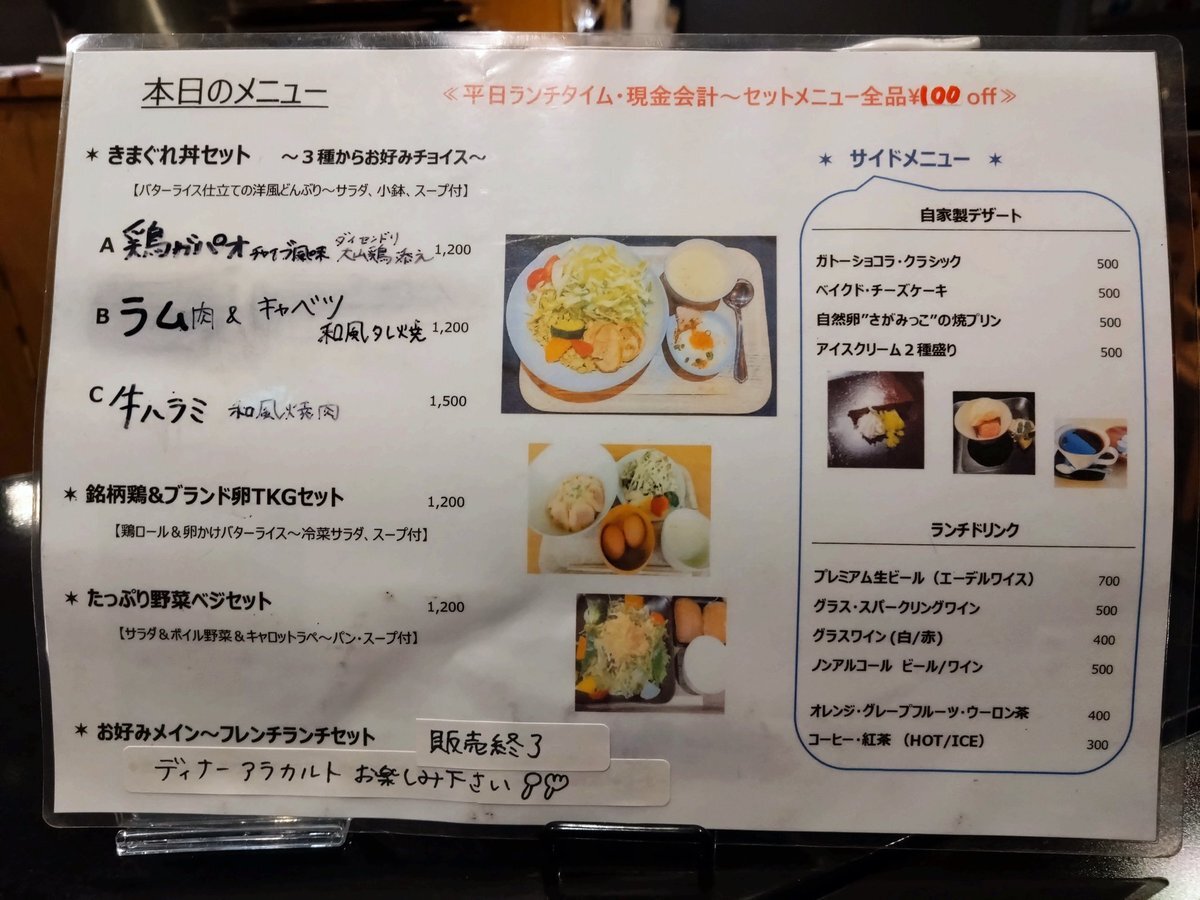 本日のメニュー
≪平日ランチタイム・現金会計～セットメニュー全品¥100 off≫
✶ きまぐれ丼セット ～３種からお好みチョイス～
【バターライス仕立ての洋風どんぶり～サラダ、小鉢、スープ付】
A 鶏ガパオ チャイブ風味 ダイセンドリ 大山鶏添え 1,200
B ラム肉 & キャベツ
和風タレ焼 1,200
C 牛ハラミ 和風焼肉 1,500
✶ 銘柄鶏&ブランド卵TKGセット 1,200
【鶏ロール＆卵かけバターライス～冷菜サラダ、スープ付】
✶ たっぷり野菜ベジセット 1,200
【サラダ&ボイル野菜＆キャロットラペ～パン・スープ付】
✶ お好みメイン～フレンチランチセット 販売終了
ディナー アラカルト お楽しみ下さい
✶ サイドメニュー ✶
自家製デザート
ガトーショコラ・クラシック 500
ベイクド・チーズケーキ 500
自然卵”さがみっこ”の焼プリン 500
アイスクリーム２種盛り 500
ランチドリンク
プレミアム生ビール（エーデルワイス） 700
グラス・スパークリングワイン 500
グラスワイン (白/赤) 400
ノンアルコール ビール/ワイン 500
オレンジ・グレープフルーツ・ウーロン茶 400
コーヒー・紅茶 （HOT/ICE） 300